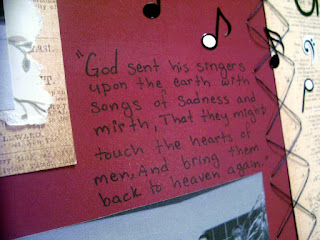 "God sent his singers
upon the earth with
songs of Sadness and
mirth, That they might
touch the hearts of
men, And bring them
back to heaven again."